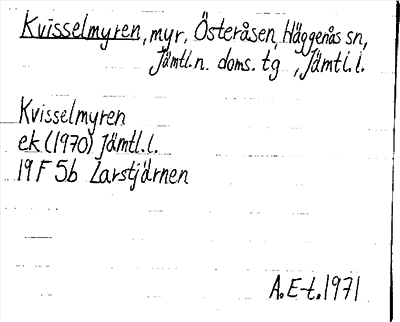 Kvisselmyren, myr, Österåsen, Häggenås sn,
Jämtl.n. doms. tg, Jämtl.l.
Kvisselmyren
ek (1970) Jämtl.l.
19 F 5b Larstjärnen
A.E-t. 1971